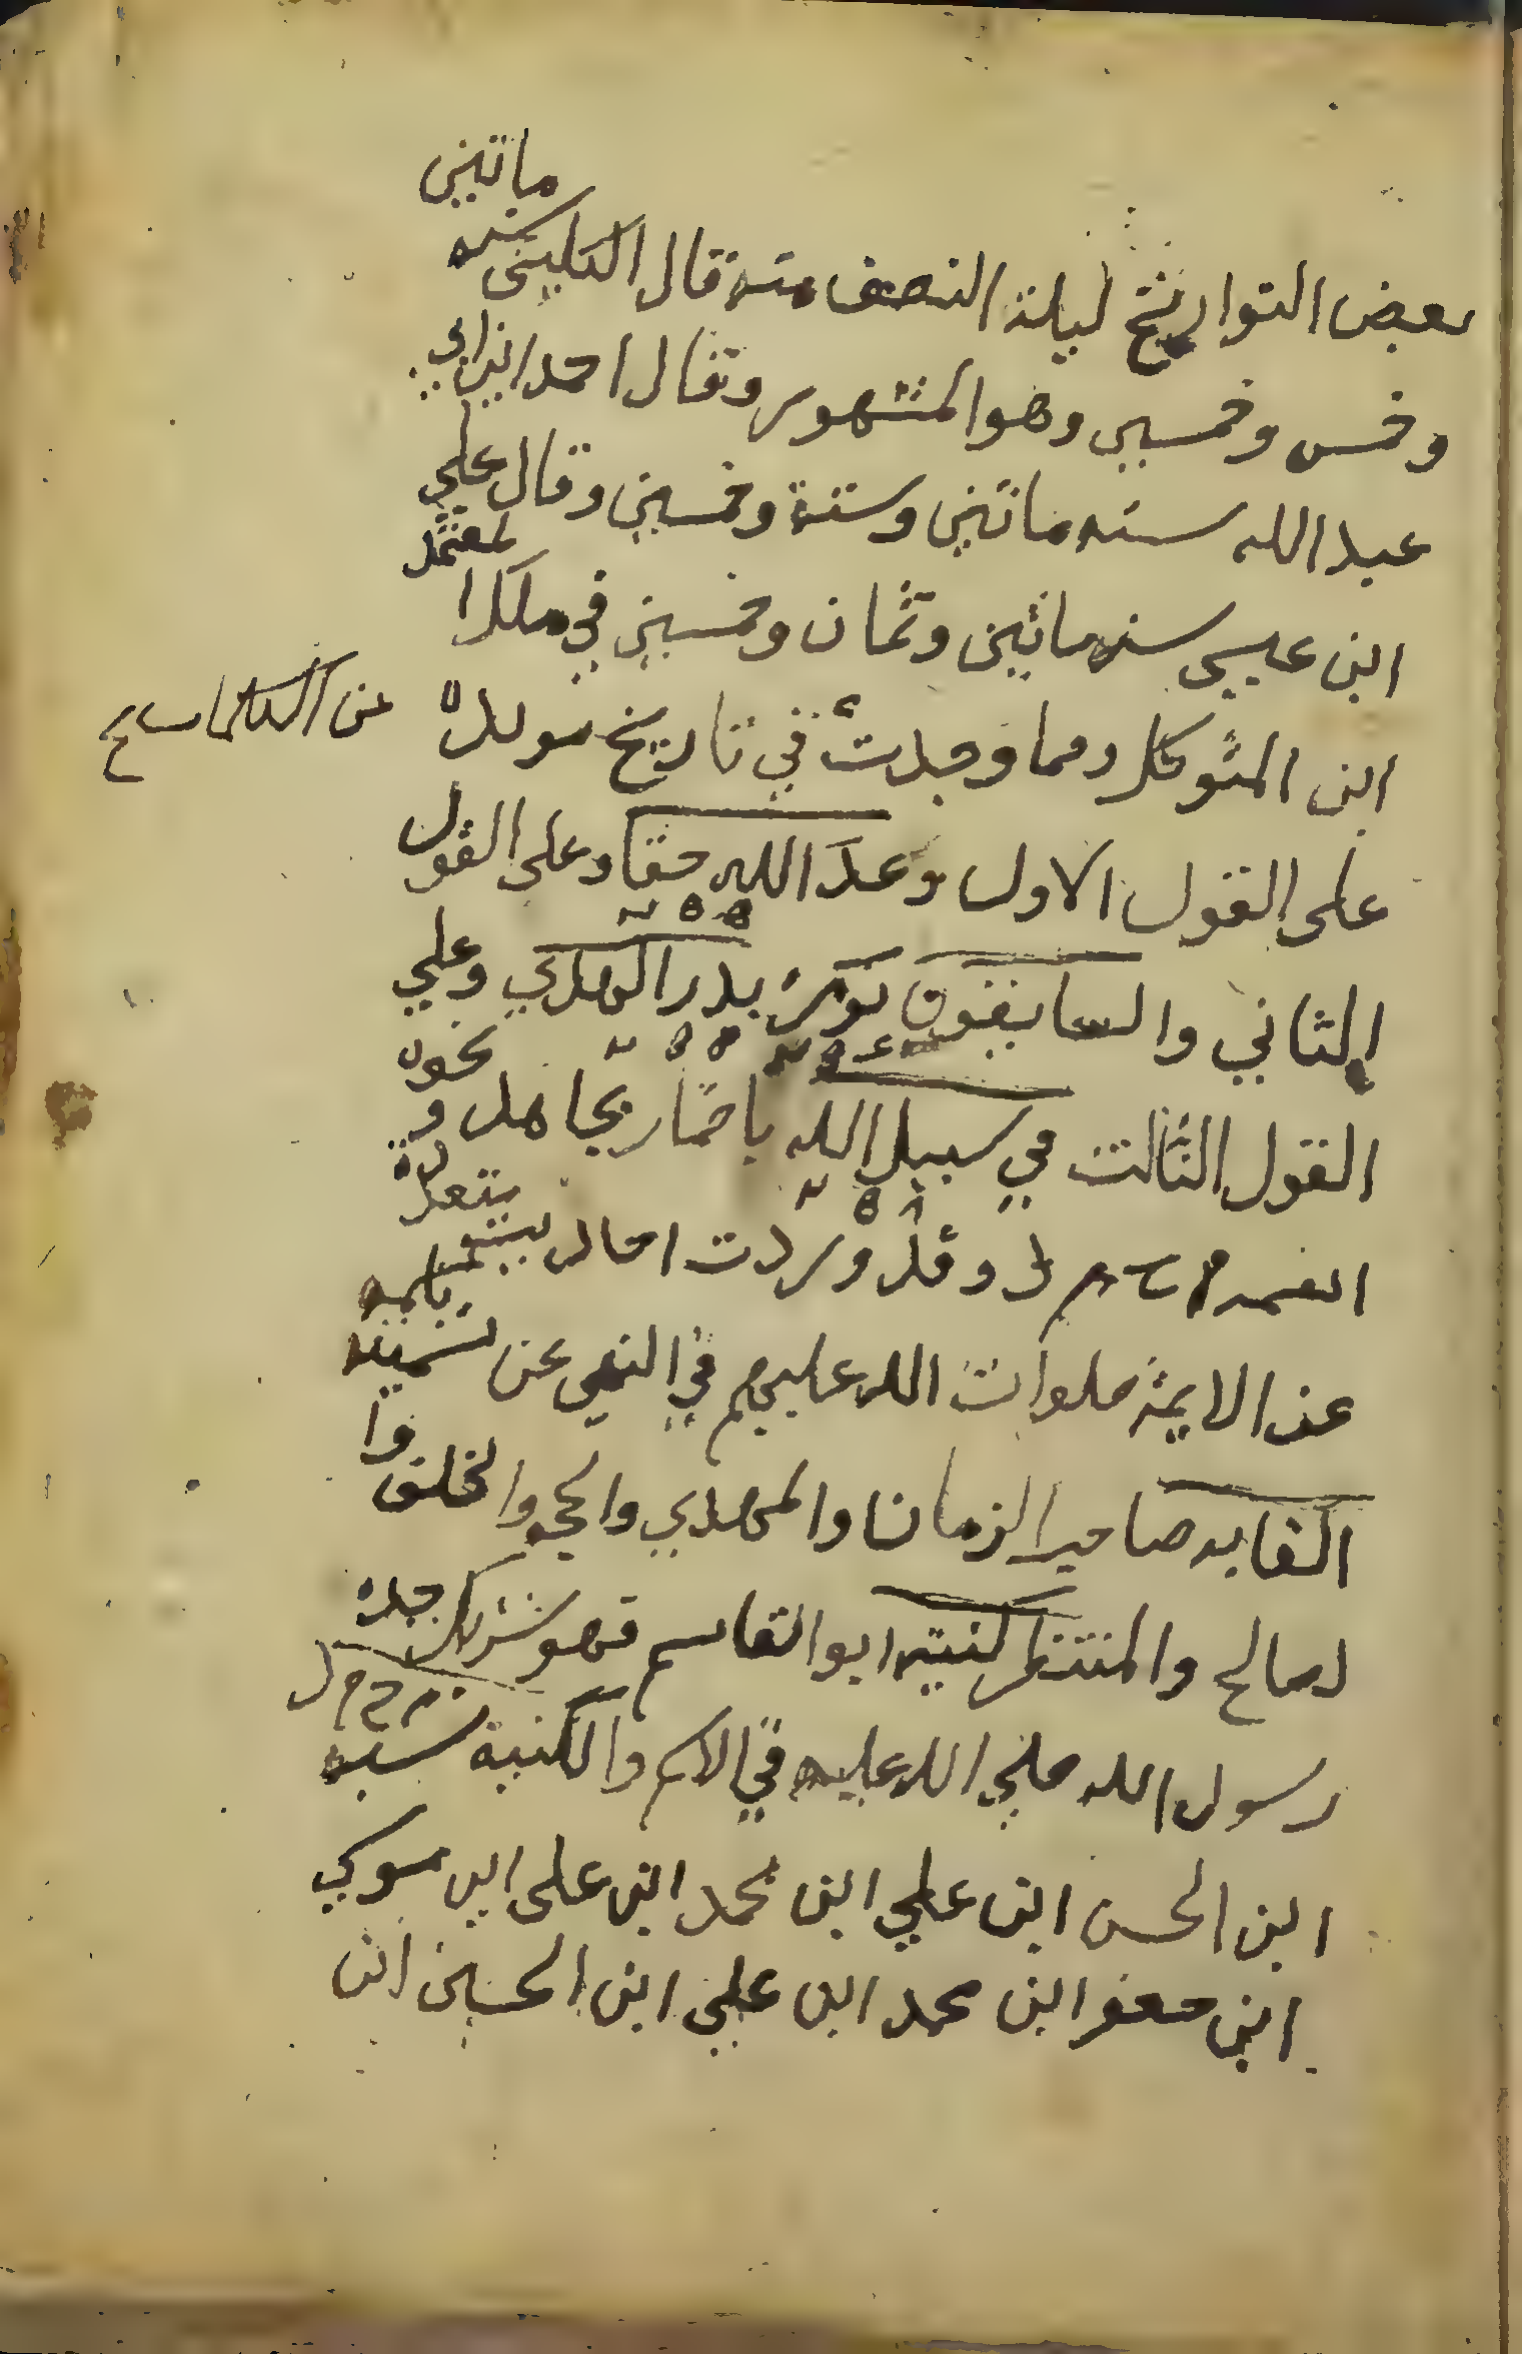 بعض التواريخ ليلة النصف منه قال الكليني سنه ماتين
وخمس وخمسين وهو المشهور وقال احمد ابن ابي
عبد الله سنه ماتين وستة وخمسين وقال علي
ابن عيسى سنه ماتين وثمان وخمسين في ملك المعتمد
ابن المتوكل ومما وجدت في تاريخ مولده من الكلمات
على القول الاول وعد الله حقا وعلى القول
الثاني والسابقون نور بدر الهدي وعلي
القول الثالث في سبيل الله باضمار يجاهد و نحوه
اسمه م ح م د وقد وردت
عن الايمة صلوات الله عليهم في النهي عن تسميته باسمه
القابه صاحب الزمان والمهدي والحجه والخلف وا
لصالح والمنتظر كنيته ابو القاسم فهو شريك جده
رسول الله صلي الله عليه في الاسم والكنية نسبه م ح م د
ابن الحسن ابن علي ابن محمد ابن على ابن موسى
ابن جعفر ابن محمد ابن علي ابن الحسين ابن